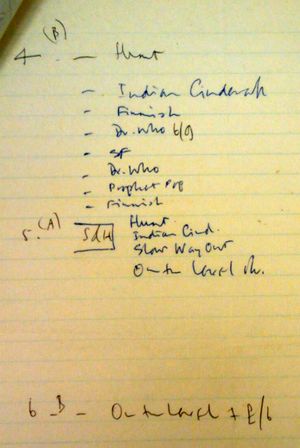 4 (B) - Hunt
- Indian Cinderella
- Finnish
- Dr. Who 6/9
- SF
- Dr. Who
- Prophet
- Finnish
5. (A) Hunt
Indian Cind.
Slow Way Out
On the Level
6 B - On the Level + E/6